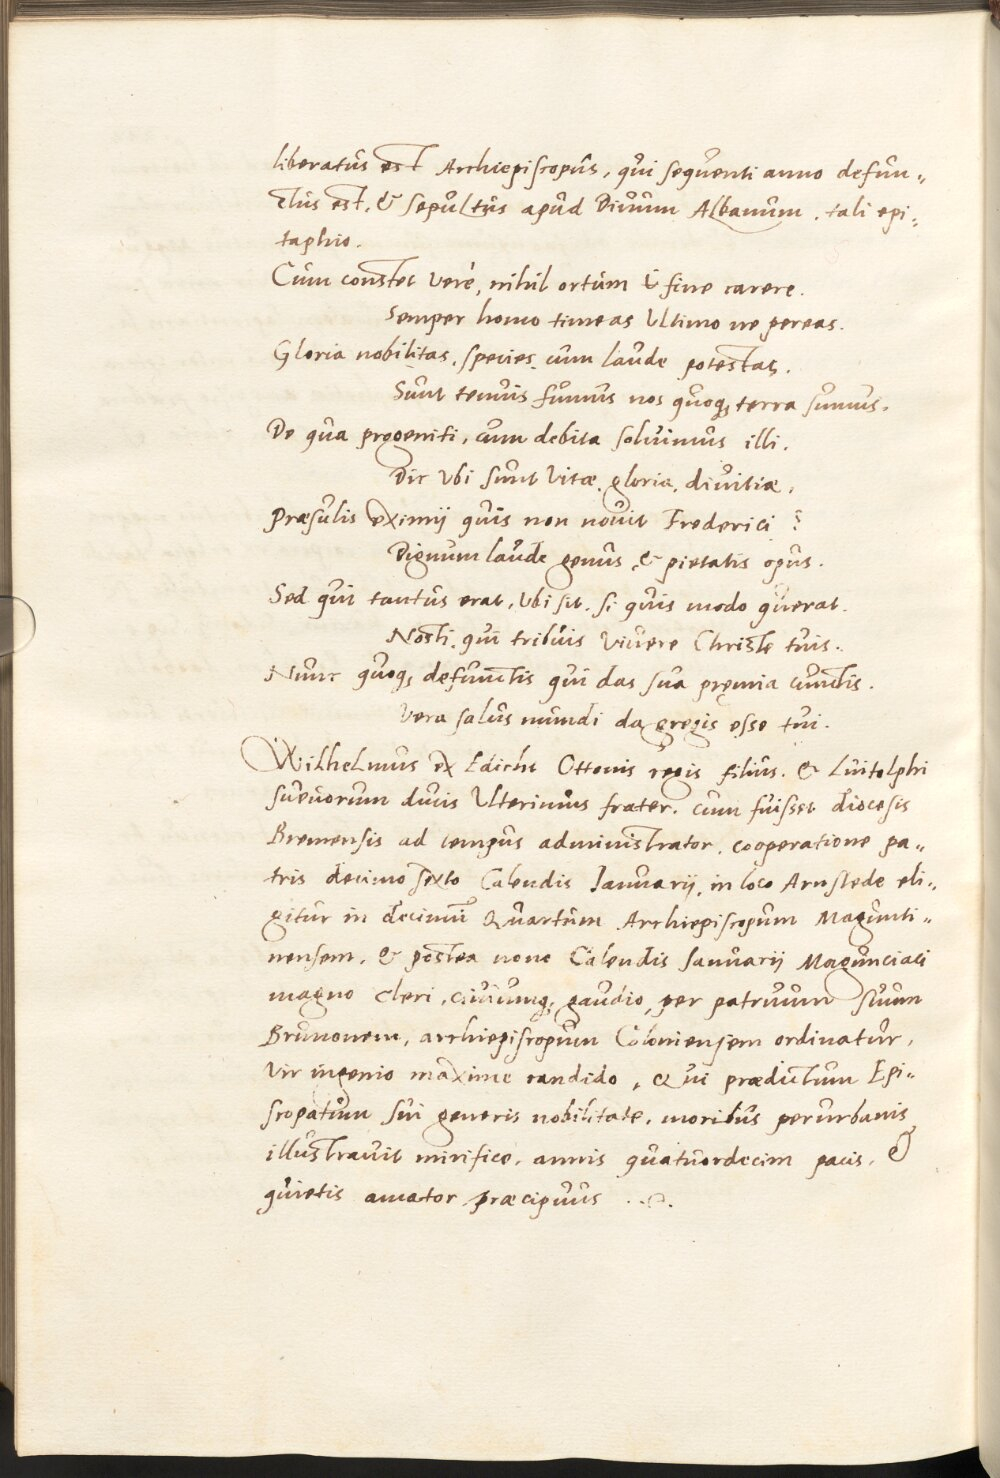 liberatus est Archiepiscopus, qui sequenti anno defun„
ctus est, & sepultus apud Diuum Albanum, tali epi„
taphio.
Cùm constet verè, nihil ortum ù fine carere.
Semper homo timeas Ultimo ne pereas.
Gloria nobilitas, species cum laude potestas.
Sunt tenuis fumus nos quoq; terra sumus.
De qua progeniti, cum debita soluimus illi.
Dic vbi sunt vitæ, gloria, diuitiæ,
Præsulis eximij quis non nouit Frederici ?
Dignum laude genus, & pietatis opus.
Sed qui tantus erat, vbi sit, si quis modo querat.
Nosti, qui tribuis viuere Christe tuis.
Nunc quoq; defunctis qui das sua pręmia cunctis.
Vera salus mundi da gregis esse tui.
Wilhelmus ex Edicht Ottonis regis filius, & Luitolphi
sueuorum ducis Ulterinus frater, cum fuisset diocesis
Bremensis ad tempus administrator, cooperatione pa„
tris decimo sexto Calendis Ianuarij, in loco Arnstede eli„
gitur in decimũ quartum Archiepiscopum Magunti„
nensem, & postea nono Calendis Ianuarij Magunciaci
magno cleri, ciuiumq; gaudio, per patruum suum
Brunonem, archiepiscopum Coloniensem ordinatur,
Vir ingenio maxime candido, Qui prædictum Epi„
scopatum sui generis nobilitate, moribus perurbanis
illustrauit mirifice, annis quatuordecim pacis, &
quietis amator præcipuus